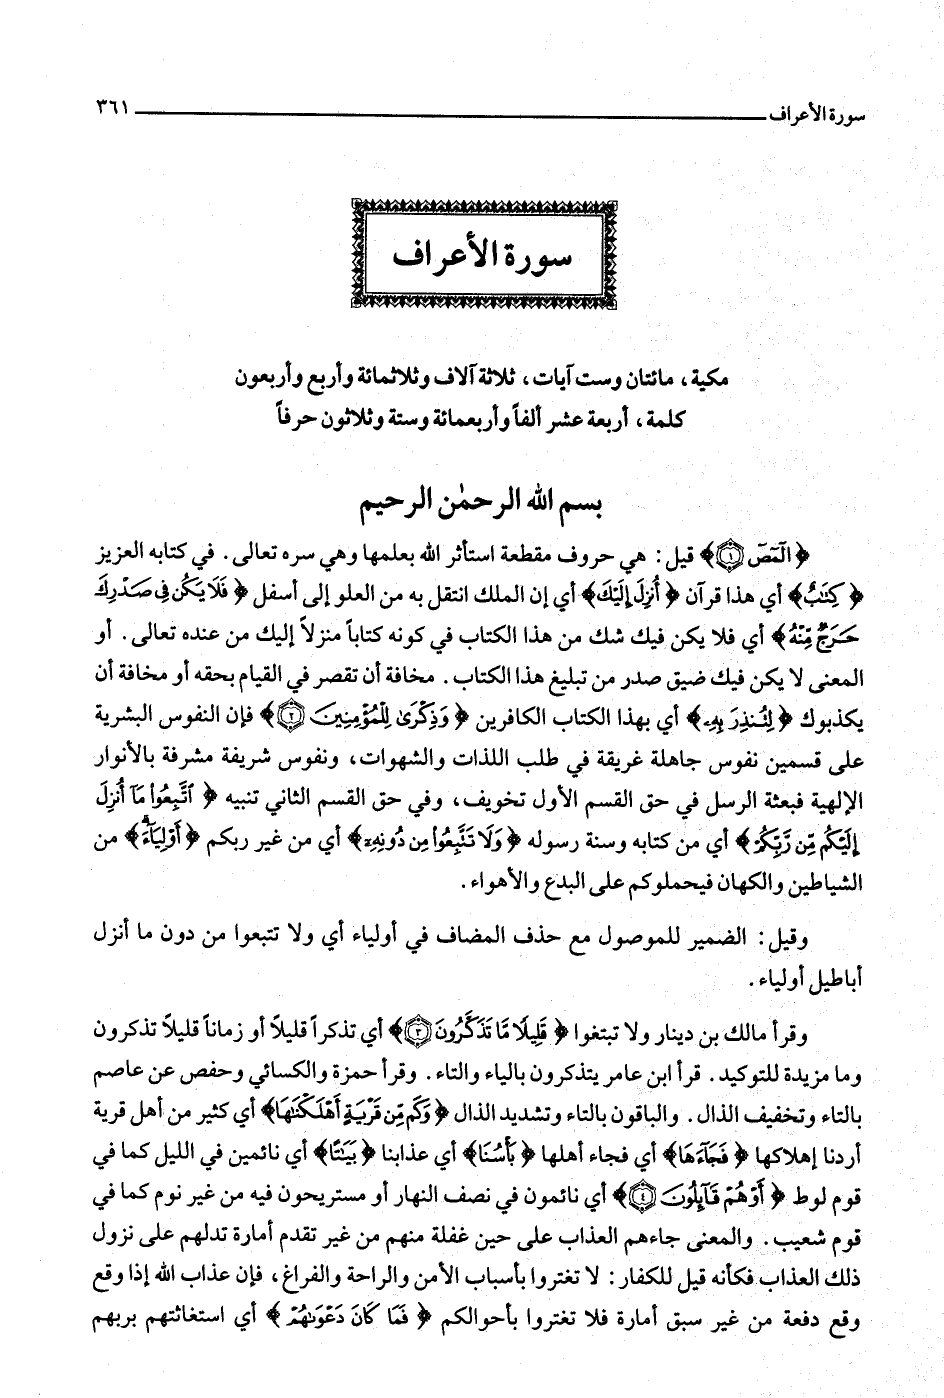 سورة الأعراف ٣٦١
سورة الأعراف
مكية، مائتان وست آيات، ثلاثة آلاف وثلاثمائة وأربع وأربعون
كلمة، أربعة عشر ألفاً وأربعمائة وستة وثلاثون حرفاً
بسم الله الرحمٰن الرحيم
﴿الٓمٓصٓ ۝١﴾ قيل: هي حروف مقطعة استأثر الله بعلمها وهي سره تعالى. في كتابه العزيز
﴿كِتَٰبٌ﴾ أي هذا قرآن ﴿أُنزِلَ إِلَيْكَ﴾ أي إن الملك انتقل به من العلو إلى أسفل ﴿فَلَا يَكُن فِى صَدْرِكَ
حَرَجٌ مِّنْهُ﴾ أي فلا يكن فيك شك من هذا الكتاب في كونه كتاباً منزلاً إليك من عنده تعالى. أو
المعنى لا يكن فيك ضيق صدر من تبليغ هذا الكتاب. مخافة أن تقصر في القيام بحقه أو مخافة أن
يكذبوك ﴿لِتُنذِرَ بِهِۦ﴾ أي بهذا الكتاب الكافرين ﴿وَذِكْرَىٰ لِلْمُؤْمِنِينَ ۝٢﴾ فإن النفوس البشرية
على قسمين نفوس جاهلة غريقة في طلب اللذات والشهوات، ونفوس شريفة مشرفة بالأنوار
الإلهية فبعثة الرسل في حق القسم الأول تخويف، وفي حق القسم الثاني تنبيه ﴿ٱتَّبِعُوا۟ مَآ أُنزِلَ
إِلَيْكُم مِّن رَّبِّكُمْ﴾ أي من كتابه وسنة رسوله ﴿وَلَا تَتَّبِعُوا۟ مِن دُونِهِۦٓ﴾ أي من غير ربكم ﴿أَوْلِيَآءَۗ﴾ من
الشياطين والكهان فيحملوكم على البدع والأهواء.
وقيل: الضمير للموصول مع حذف المضاف في أولياء أي ولا تتبعوا من دون ما أنزل
أباطيل أولياء.
وقرأ مالك بن دينار ولا تبتغوا ﴿قَلِيلًا مَّا تَذَكَّرُونَ ۝٣﴾ أي تذكراً قليلاً أو زماناً قليلاً تذكرون
وما مزيدة للتوكيد. قرأ ابن عامر يتذكرون بالياء والتاء. وقرأ حمزة والكسائي وحفص عن عاصم
بالتاء وتخفيف الذال. والباقون بالتاء وتشديد الذال ﴿وَكَم مِّن قَرْيَةٍ أَهْلَكْنَٰهَا﴾ أي كثير من أهل قرية
أردنا إهلاكها ﴿فَجَآءَهَا﴾ أي فجاء أهلها ﴿بَأْسُنَا﴾ أي عذابنا ﴿بَيَٰتًا﴾ أي نائمين في الليل كما في
قوم لوط ﴿أَوْ هُمْ قَآئِلُونَ ۝٤﴾ أي نائمون في نصف النهار أو مستريحون فيه من غير نوم كما في
قوم شعيب. والمعنى جاءهم العذاب على حين غفلة منهم من غير تقدم أمارة تدلهم على نزول
ذلك العذاب فكأنه قيل للكفار: لا تغتروا بأسباب الأمن والراحة والفراغ، فإن عذاب الله إذا وقع
وقع دفعة من غير سبق أمارة فلا تغتروا بأحوالكم ﴿فَمَا كَانَ دَعْوَىٰهُمْ﴾ أي استغاثتهم بربهم